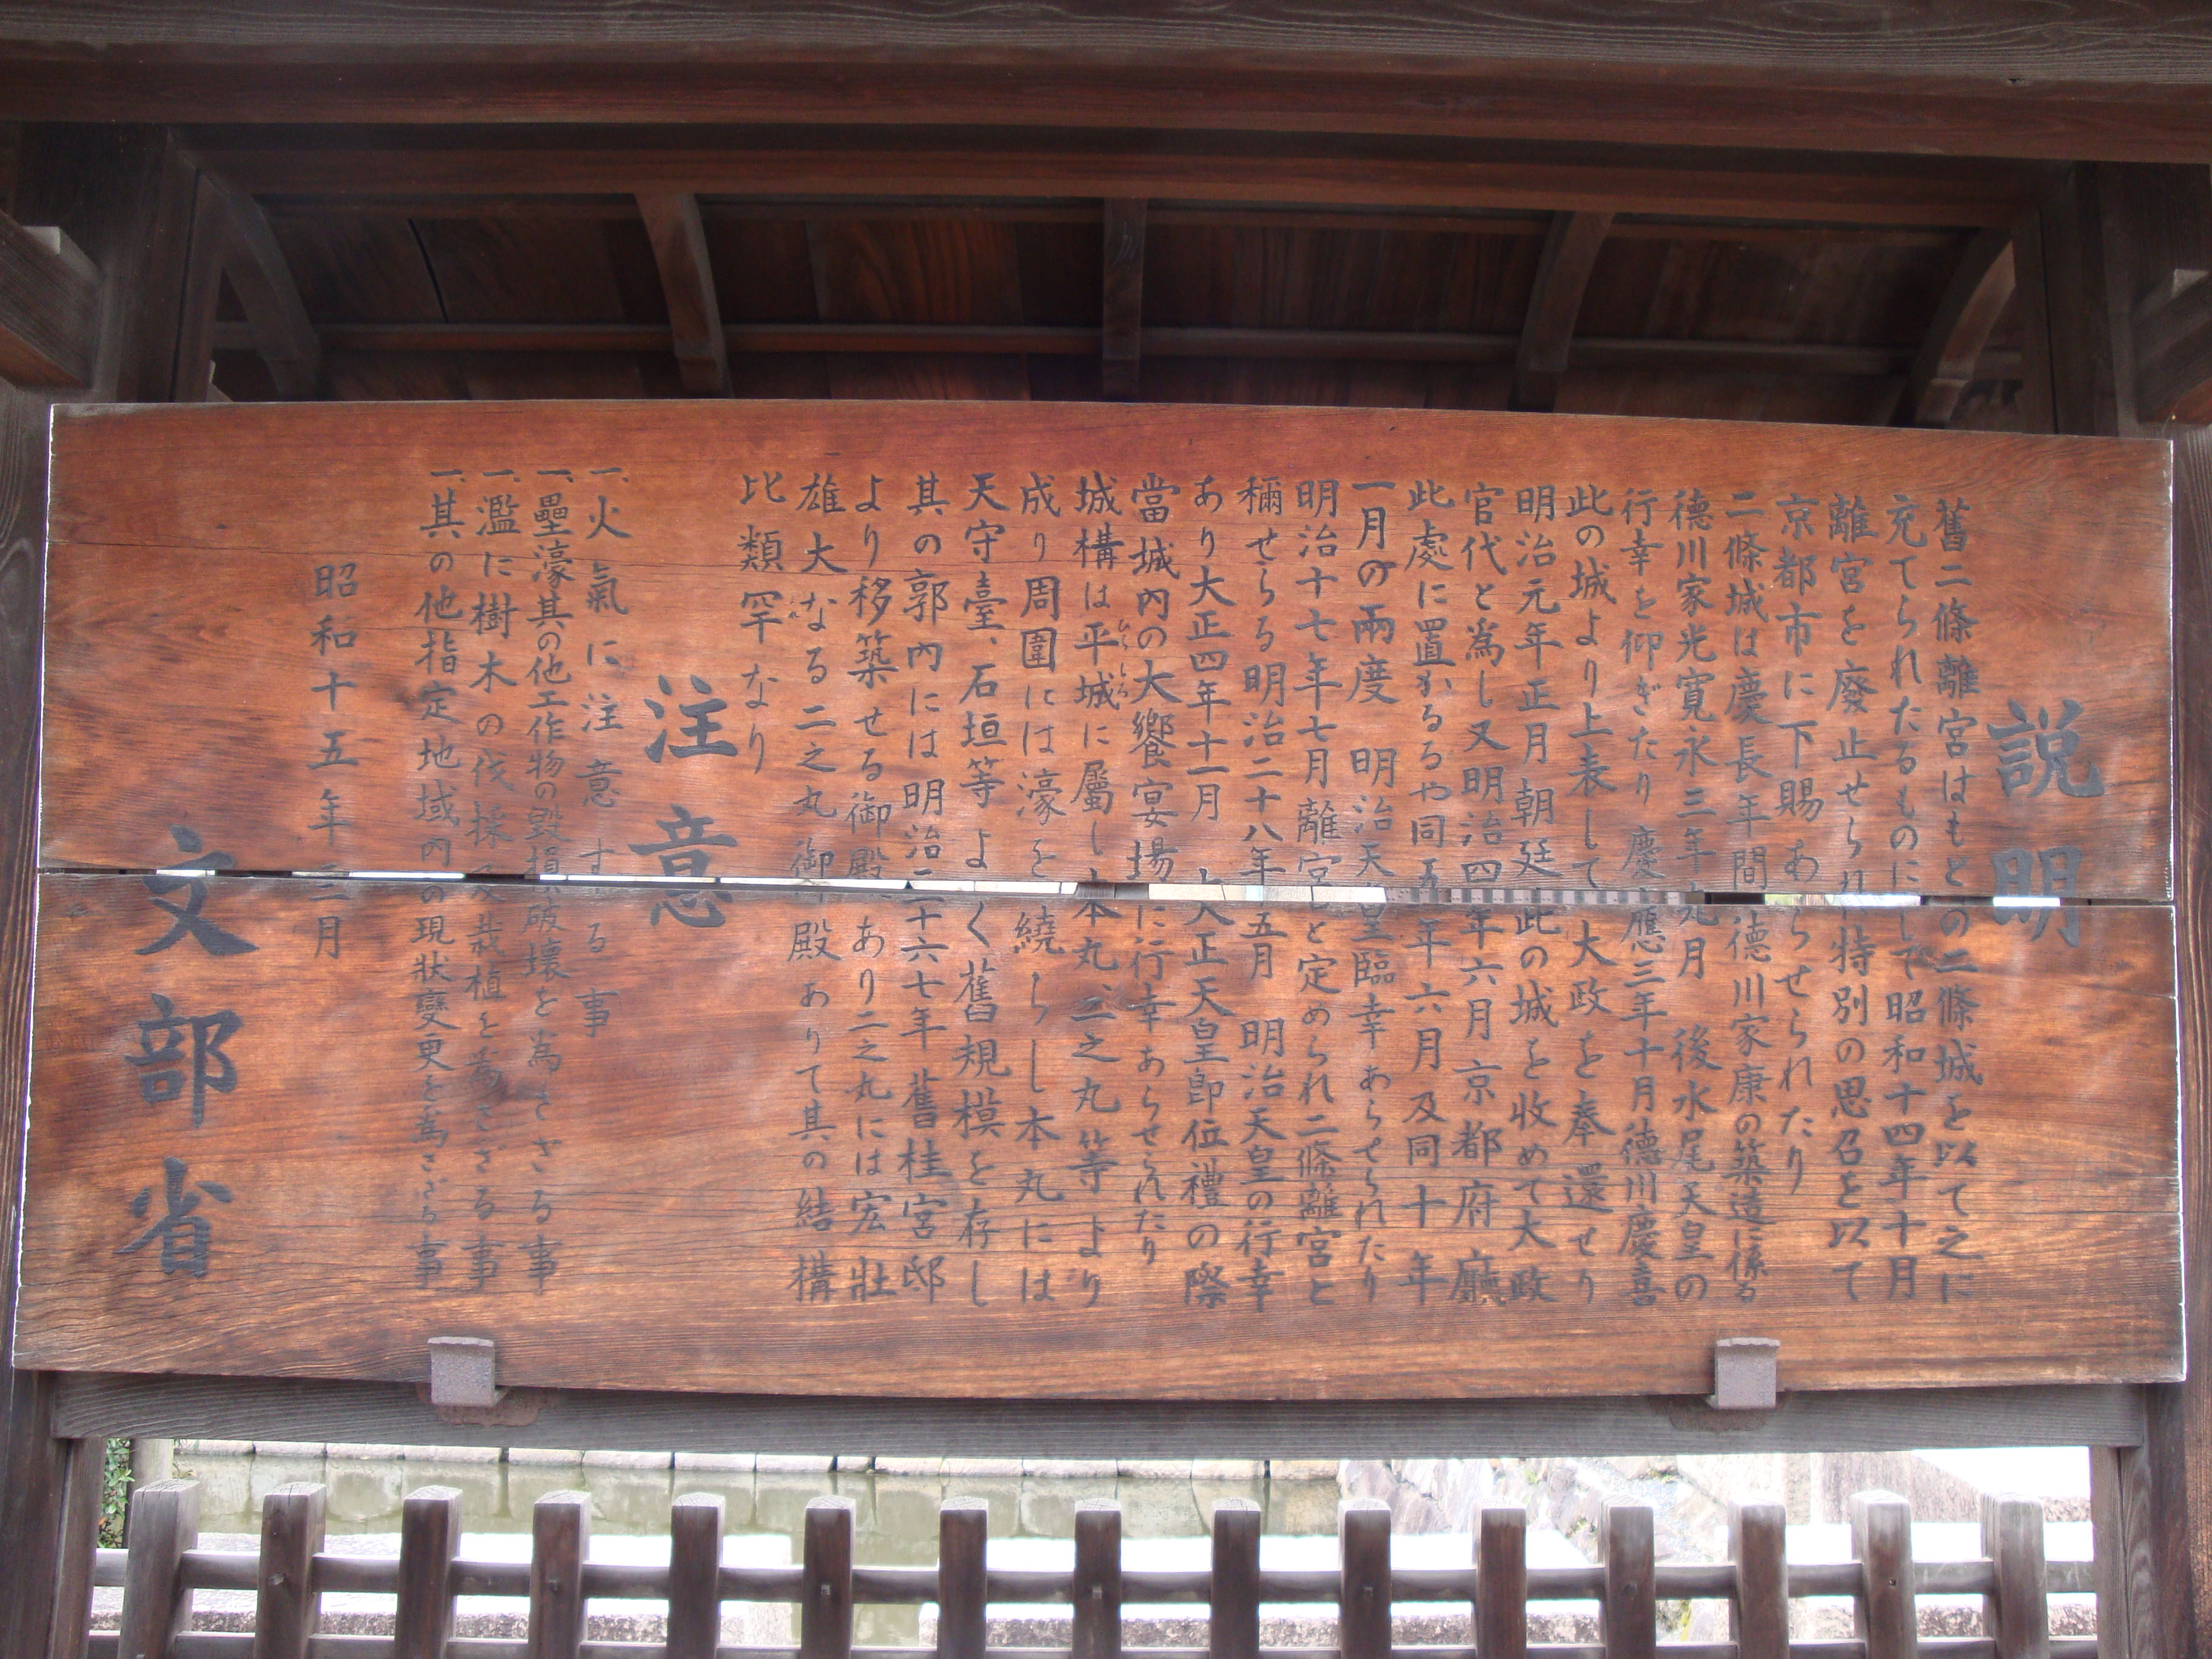 説明
舊二條離宮はもとの二條城を以て之に
充てられたるものにして昭和十四年十月
離宮を廢止せられ特別の思召を以て
京都市に下賜あらせられたり
二條城は慶長年間德川家康の築造に係る
德川家光寛永三年九月 後水尾天皇の
行幸を仰ぎたり 慶應三年十月德川慶喜
此の城より上表して大政を奉還せり
明治元年正月朝廷此の城を收めて大政
官代と爲し又明治四年六月京都府廳
此處に置かるるや同五年六月及同十年
一月の兩度 明治天皇臨幸あらせられたり
明治十七年七月離宮と定められ二條離宮と
稱せらる明治二十八年五月 明治天皇の行幸
あり大正四年十一月 大正天皇即位禮の際
當城内の大饗宴場に行幸あらせられたり
城構は平城に屬し本丸、二之丸等より
ひらしろ
成り周圍には濠を繞らし本丸には
天守臺、石垣等よく舊規模を存し
其の郭内には明治二十六七年舊桂宮邸
より移築せる御殿あり二之丸には宏壯
雄大なる二之丸御殿ありて其の結構
比類罕なり
注意
一、火氣に注意する事
一、壘濠其の他工作物の毀損破壊を為さざる事
一、濫に樹木の伐採及栽植を為さざる事
一、其の他指定地域内の現狀變更を為さざる事
昭和十五年三月
文部省